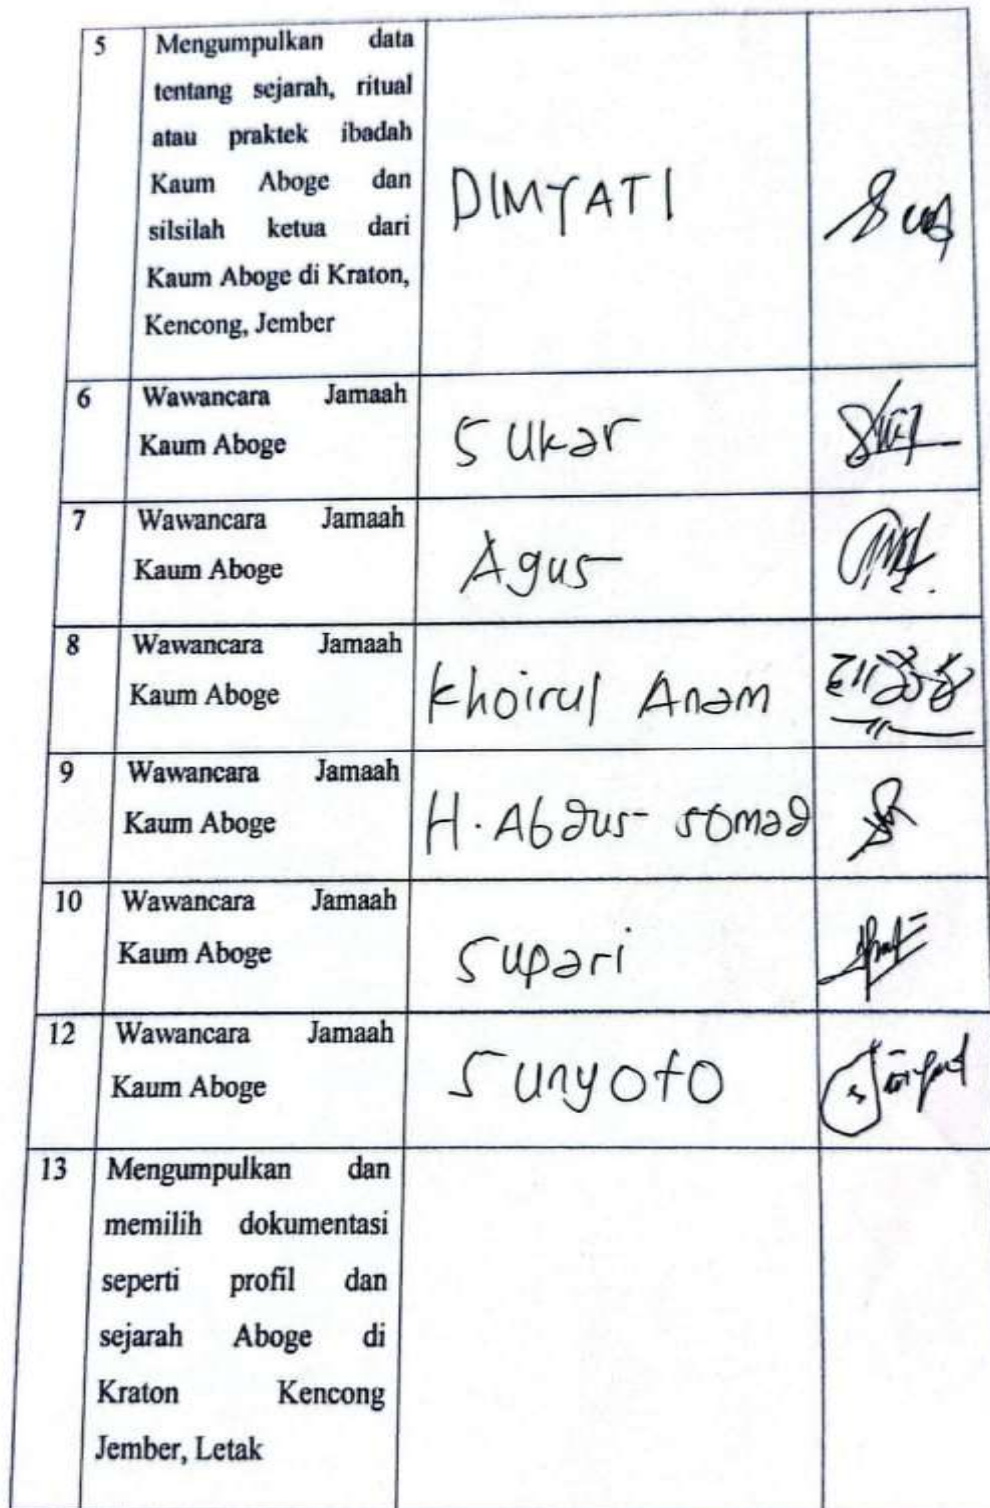 5
Mengumpulkan data
tentang sejarah, ritual
atau praktek ibadah
Kaum Aboge dan
silsilah ketua dari
Kaum Aboge di Kraton,
Kencong, Jember
DIMYATI
6
Wawancara Jamaah
Kaum Aboge
Sukar
7
Wawancara Jamaah
Kaum Aboge
Agus
8
Wawancara Jamaah
Kaum Aboge
Khoirul Anam
9
Wawancara Jamaah
Kaum Aboge
H. Abdus somad
10
Wawancara Jamaah
Kaum Aboge
Supari
12
Wawancara Jamaah
Kaum Aboge
Sunyoto
13
Mengumpulkan dan
memilih dokumentasi
seperti profil dan
sejarah Aboge di
Kraton Kencong
Jember, Letak